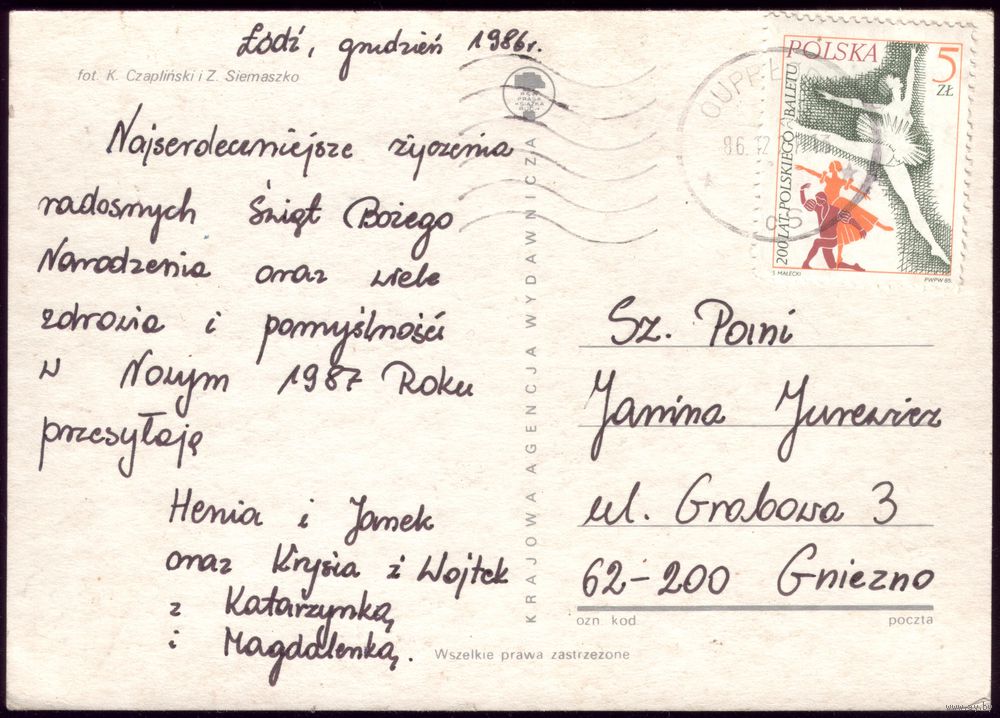 Łódź, grudzień 1986r.
fot. K. Czapliński i Z. Siemaszko
Najserdeczniejsze życzenia
radosnych Świąt Bożego
Narodzenia oraz wiele
zdrowia i pomyślności
w Nowym 1987 Roku
przesyłają
Henia i Janek
oraz Krysia i Wojtek
z Katarzynką
i Magdalenką.
KRAJOWA AGENCJA WYDAWNICZA
RSW
PRASA
KSIĄŻKA
RUCH
86.12
POLSKA
5
ZŁ
200 LAT POLSKIEGO BALETU
S. MAŁECKI
PWPW 85.
Sz. Pani
Janina Jurewicz
ul. Grabowa 3
62-200 Gniezno
ozn kod
poczta
Wszelkie prawa zastrzeżone